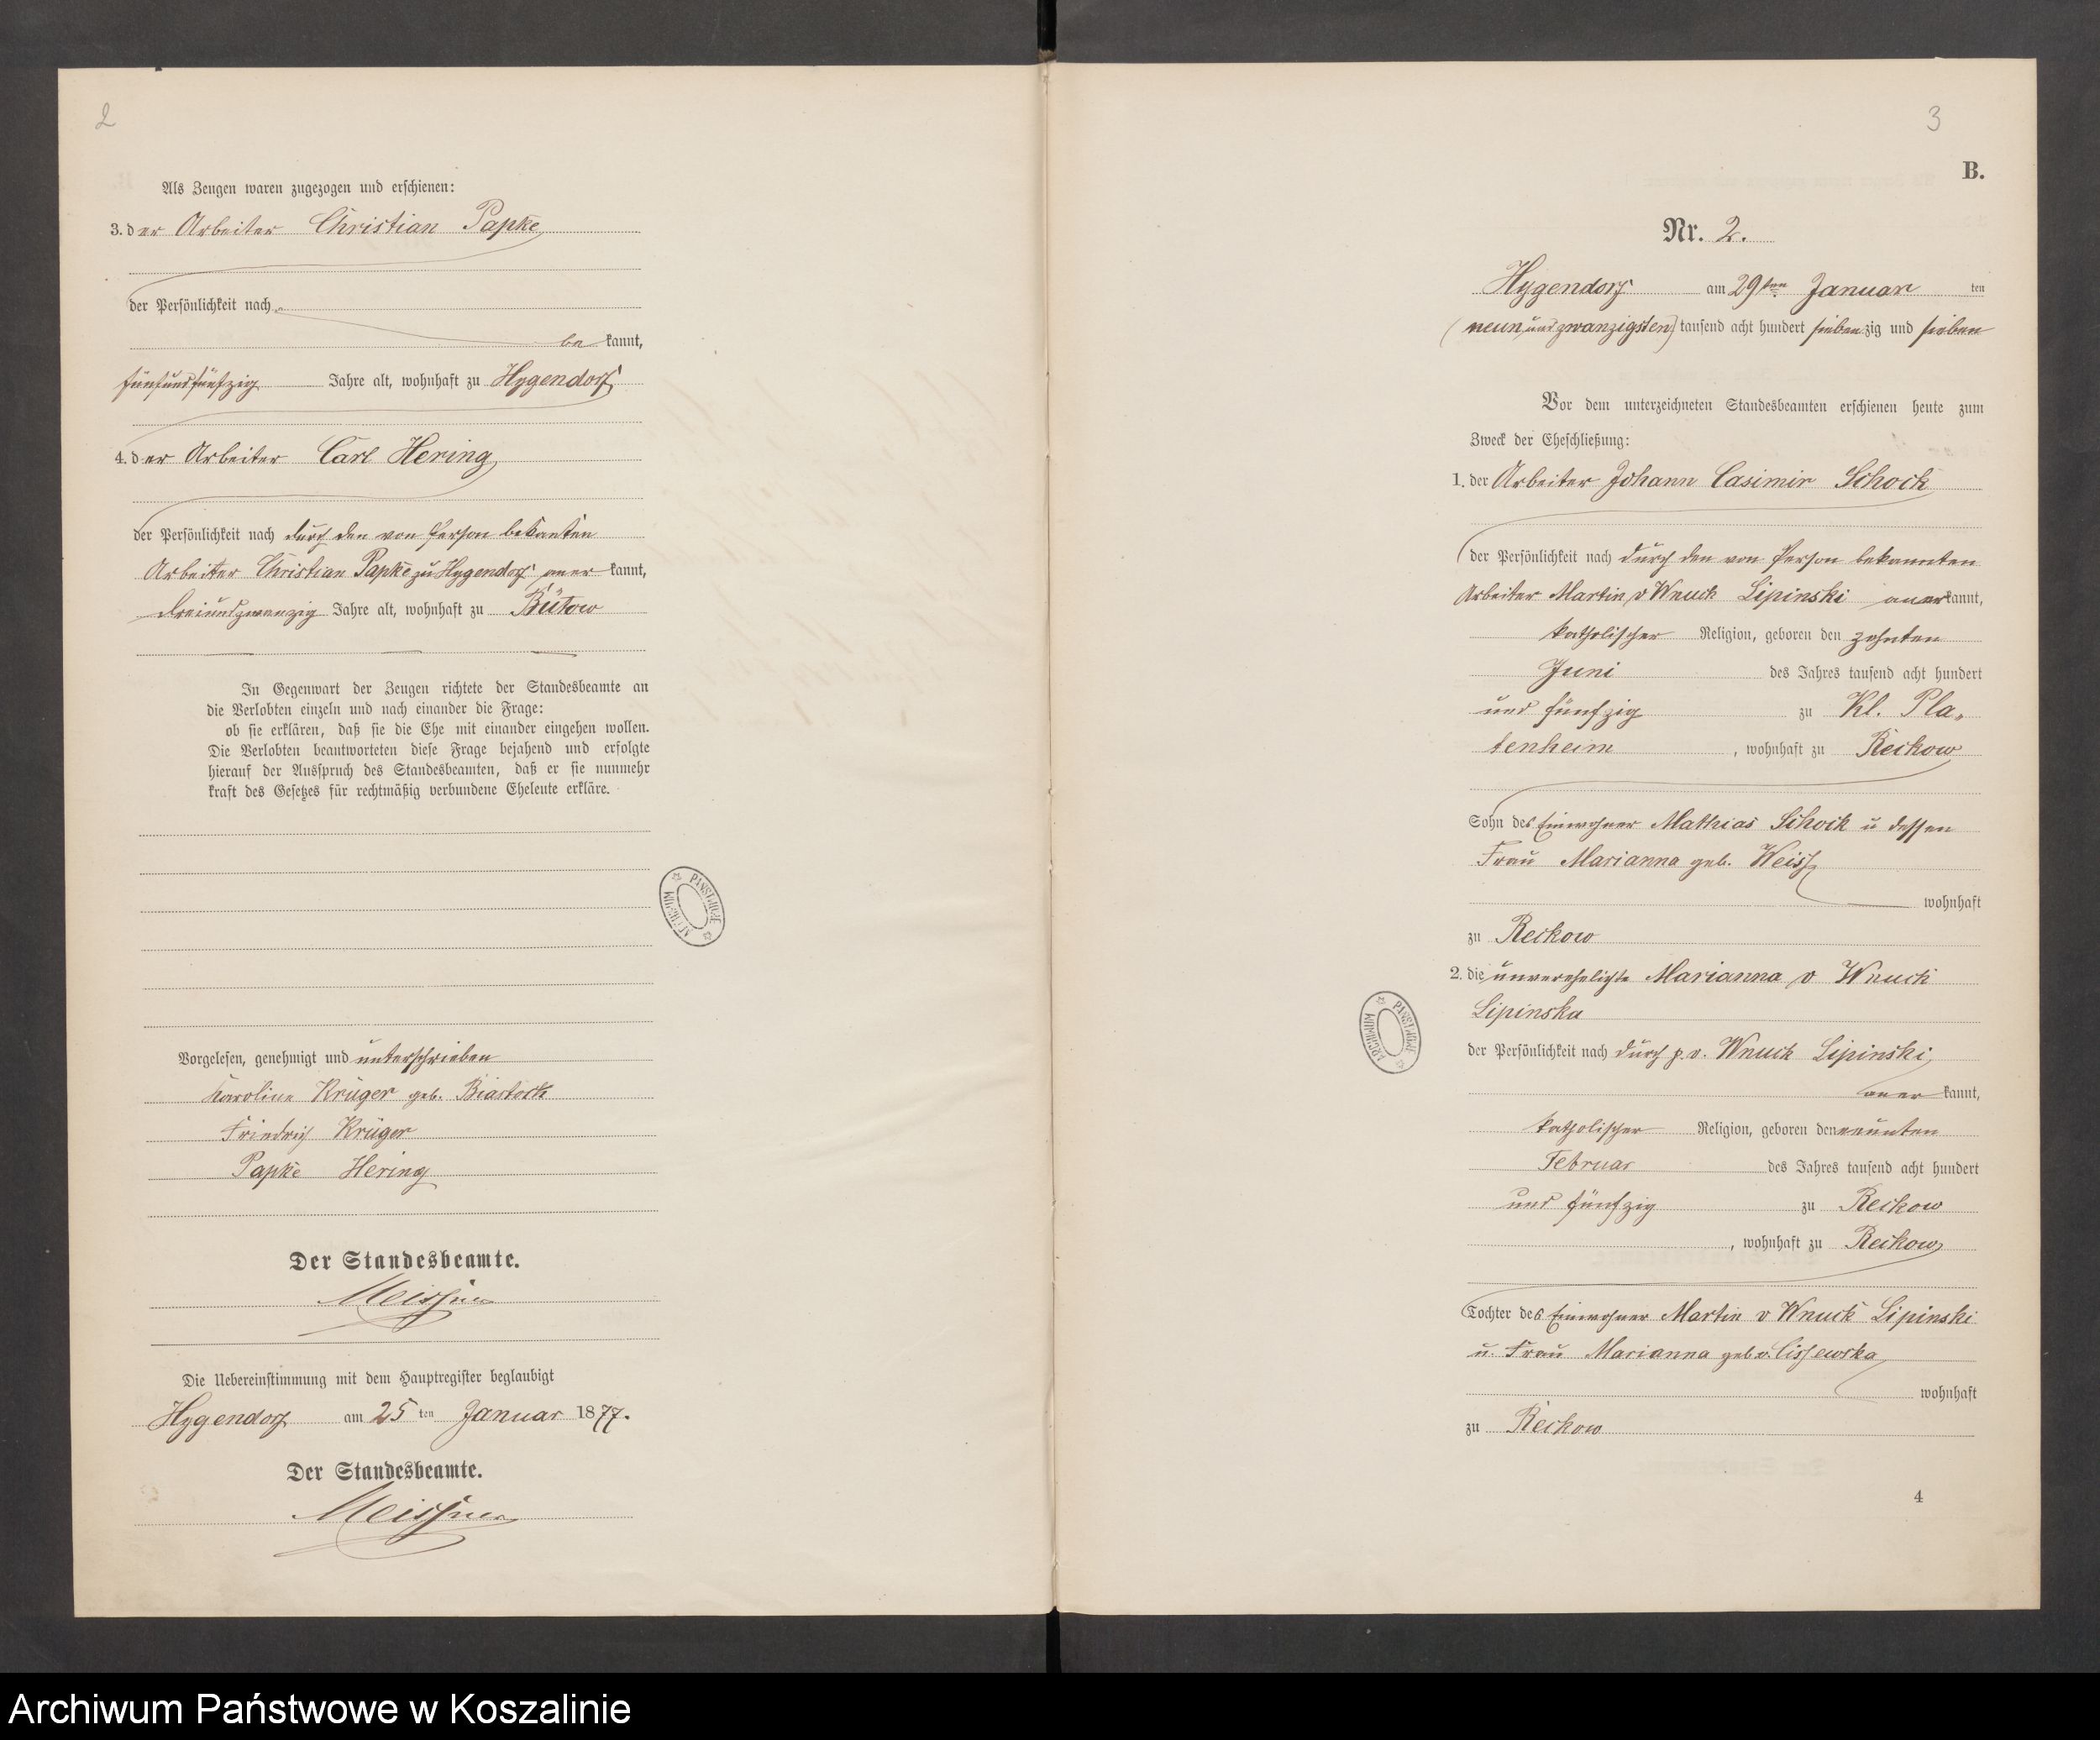 2
Als Zeugen waren zugezogen und erschienen:
3. der Arbeiter Christian Papke
der Persönlichkeit nach
be kannt,
fünfundfünfzig Jahre alt, wohnhaft zu Hygendorf
4. der Arbeiter Carl Hering
der Persönlichkeit nach durch den von Person bekanten
Arbeiter Christian Papke zu Hygendorf aner kannt,
dreiundzwanzig Jahre alt, wohnhaft zu Bütow
In Gegenwart der Zeugen richtete der Standesbeamte an
die Verlobten einzeln und nach einander die Frage:
ob sie erklären, daß sie die Ehe mit einander eingehen wollen.
Die Verlobten beantworteten diese Frage bejahend und erfolgte
hierauf der Ausspruch des Standesbeamten, daß er sie nunmehr
kraft des Gesetzes für rechtmäßig verbundene Eheleute erkläre.
Vorgelesen, genehmigt und unterschrieben
Karoline Krüger geb.
Friedrich Krüger
Papke Hering
Der Standesbeamte.
Meissner
Die Uebereinstimmung mit dem Hauptregister beglaubigt
Hygendorf am 25 ten Januar 1877.
Der Standesbeamte.
Meissner
3
B.
Nr. 2.
Hygendorf am 29ten Januar ten
(neun und zwanzigsten) tausend acht hundert siebenzig und sieben
Vor dem unterzeichneten Standesbeamten erschienen heute zum
Zweck der Eheschließung:
1. der Arbeiter Johann Casimir Schock
der Persönlichkeit nach durch den von Person bekannten
Arbeiter Martin v Wnuck Lipinski anerkannt,
katholischer Religion, geboren den zehnten
Juni des Jahres tausend acht hundert
und fünfzig zu Kl. Pla-
tenheim, wohnhaft zu Reckow
Sohn des Einwohner Mathias Schock u dessen
Frau Marianna geb. Weiss
wohnhaft
zu Reckow
2. die unverehelichte Marianna v Wnuck
Lipinska
der Persönlichkeit nach durch p. v. Wnuck Lipinski
aner kannt,
katholischer Religion, geboren den neunten
Februar des Jahres tausend acht hundert
und fünfzig zu Reckow
, wohnhaft zu Reckow
Tochter des Einwohner Martin v Wnuck Lipinski
u. Frau Marianna geb v. Cissewska
wohnhaft
zu Reckow
4
Archiwum Państwowe w Koszalinie